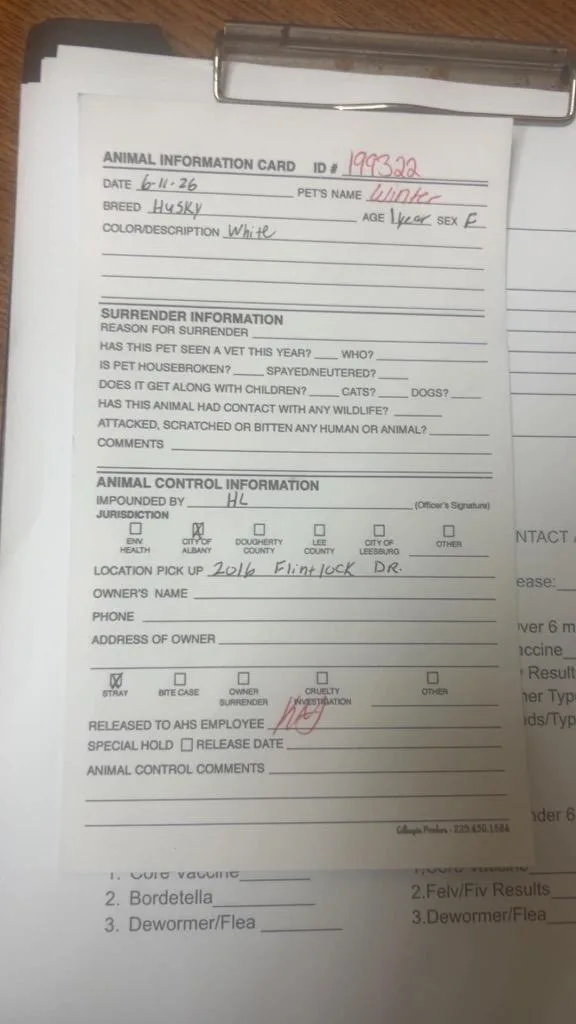 ANIMAL INFORMATION CARD ID # 199322
DATE 6-11-26 PET'S NAME Winter
BREED Husky AGE 1 year SEX F
COLOR/DESCRIPTION White
SURRENDER INFORMATION
REASON FOR SURRENDER
HAS THIS PET SEEN A VET THIS YEAR? WHO?
IS PET HOUSEBROKEN? SPAYED/NEUTERED?
DOES IT GET ALONG WITH CHILDREN? CATS? DOGS?
HAS THIS ANIMAL HAD CONTACT WITH ANY WILDLIFE?
ATTACKED, SCRATCHED OR BITTEN ANY HUMAN OR ANIMAL?
COMMENTS
ANIMAL CONTROL INFORMATION
IMPOUNDED BY HL (Officer's Signature)
JURISDICTION
ENV. HEALTH CITY OF ALBANY DOUGHERTY COUNTY LEE COUNTY CITY OF LEESBURG OTHER
LOCATION PICK UP 2016 Flintlock DR.
OWNER'S NAME
PHONE
ADDRESS OF OWNER
STRAY BITE CASE OWNER SURRENDER CRUELTY INVESTIGATION OTHER
RELEASED TO AHS EMPLOYEE
SPECIAL HOLD RELEASE DATE
ANIMAL CONTROL COMMENTS
NTACT
ease:
ver 6 m
accine
Result
ner Typ
ids/Typ
nder 6
1. Core Vaccine
2. Bordetella
3. Dewormer/Flea
2.Felv/Fiv Results
3.Dewormer/Flea